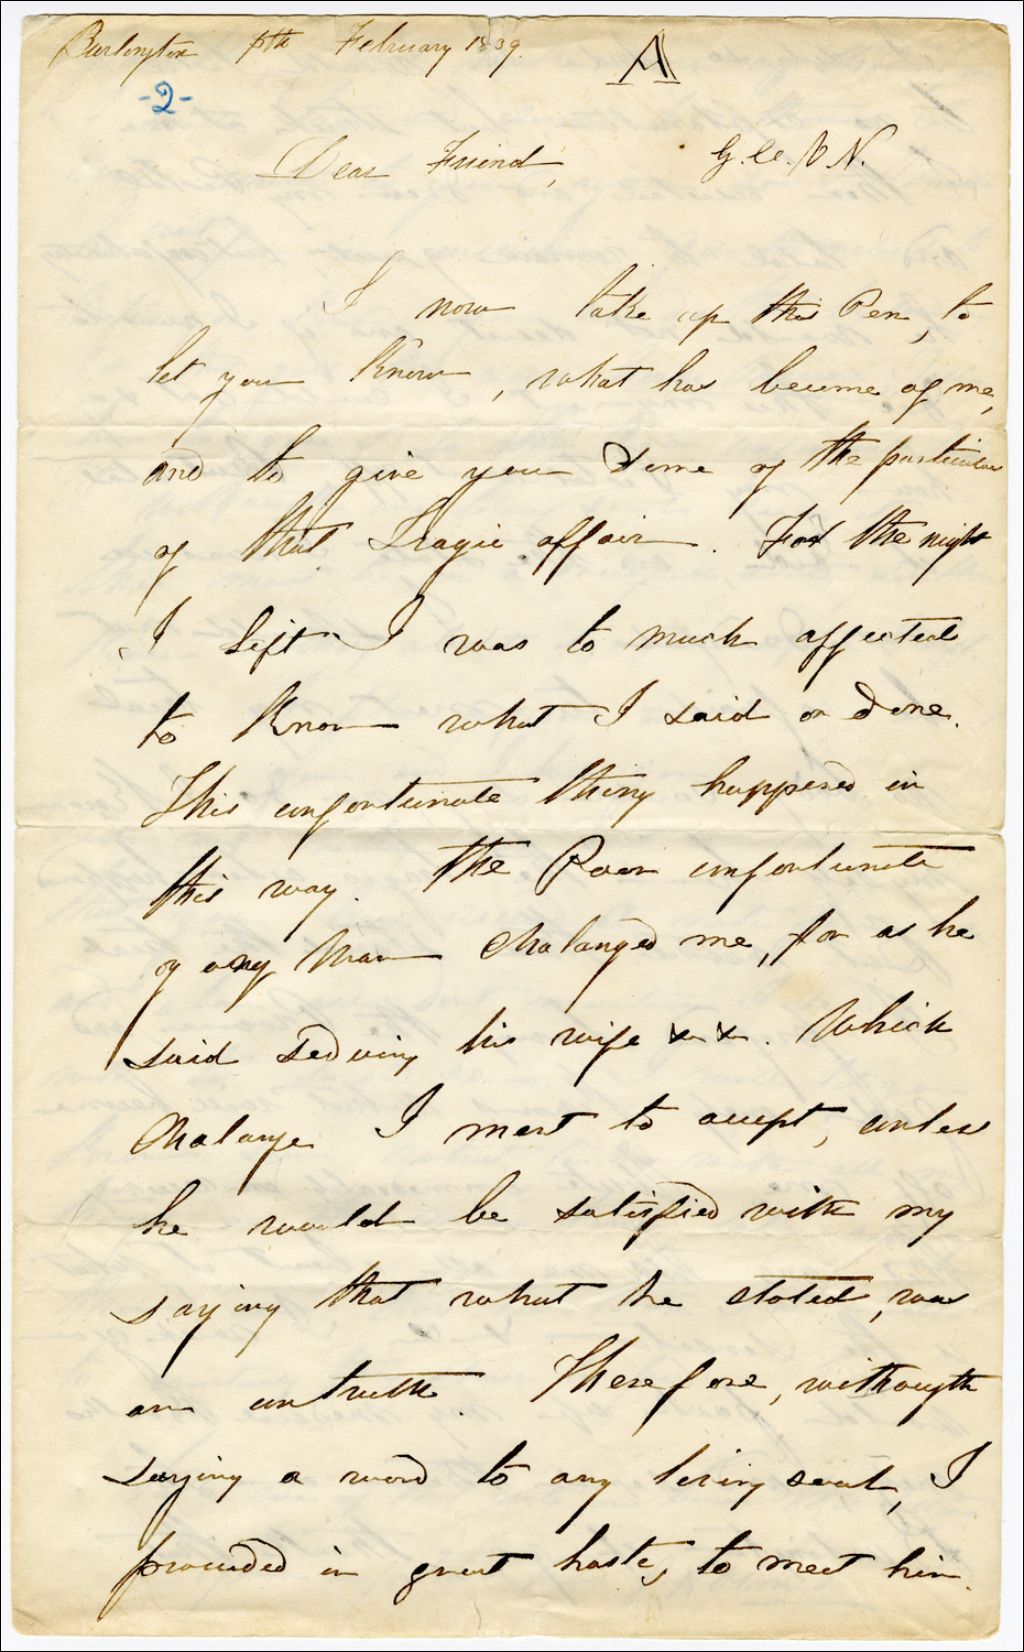 Burlington 5th February 1839.
A
-2-
Dear Friend, G. Ce. V N.
I now take up this Pen, to
let you Know, what has become of me,
and to give you some of the particular
of that Tragic affair. For the night
I left I was to much affected
to Know what I said or done.
This unfortunate thing happened in
this way. The Poor unfortunate
young Man Chalanged me, for as he
said seducing his wife x x. Which
Chalange I ment to accept, unless
he would be satisfied with my
saying that what he stated, was
an untruth. Therefore, withougth
saying a word to any living soul, I
proceeded in great haste, to meet him.